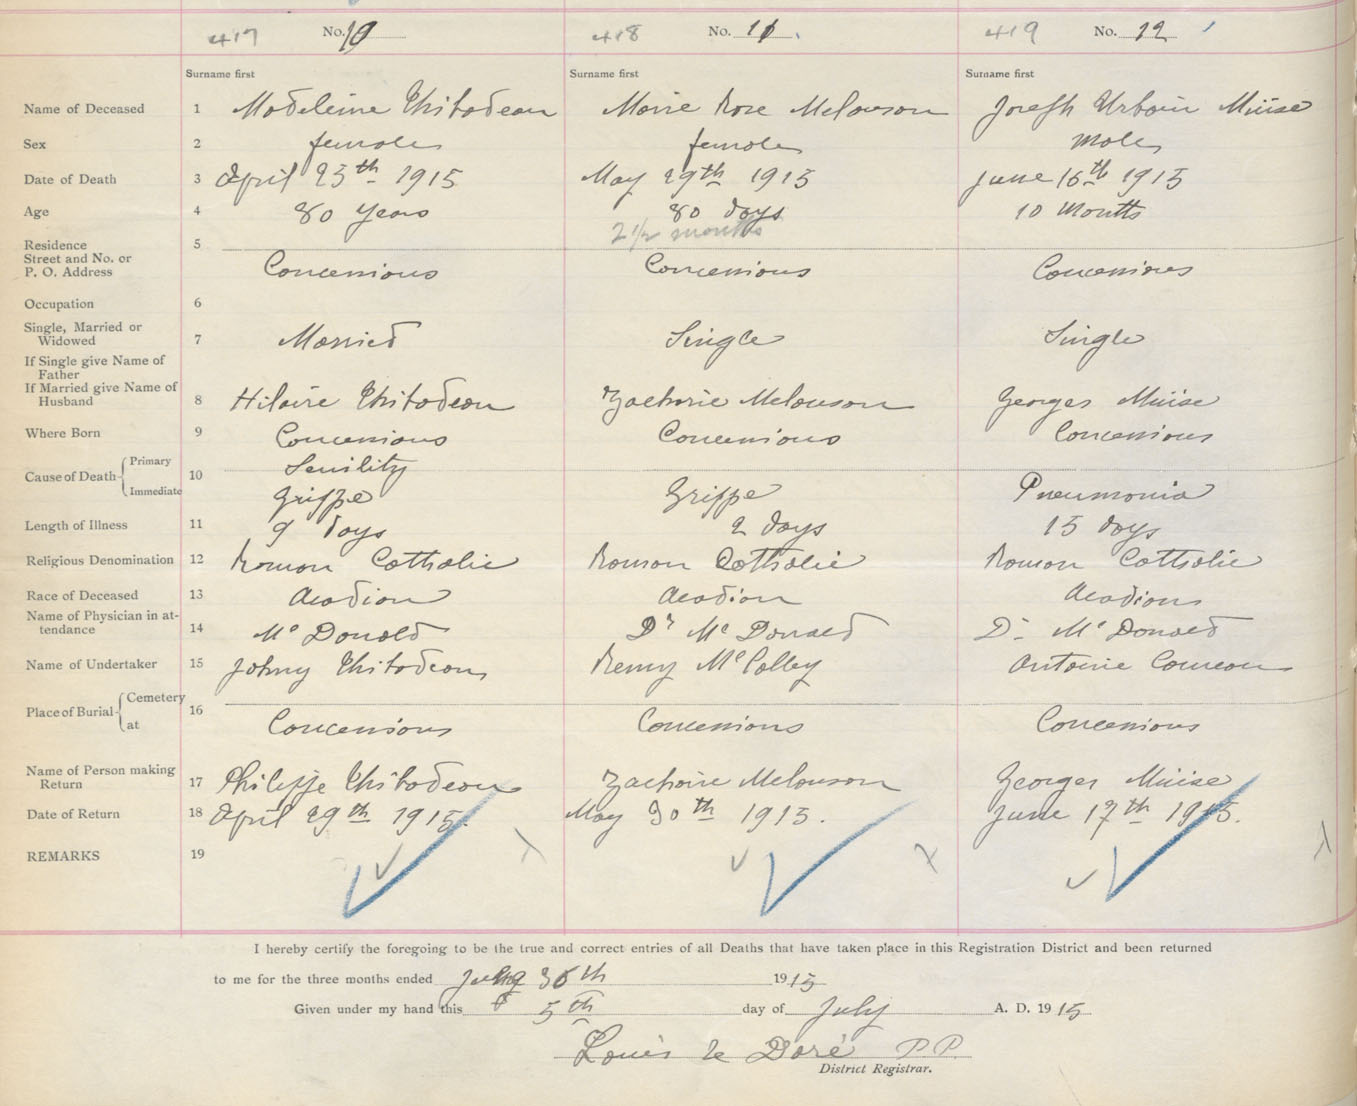 417 No. 10 418 No. 11 419 No. 12
Surname first Surname first Surname first
Name of Deceased 1 Madeleine Thibodeau Marie Rose Melanson Joseph Urbain Muise
Sex 2 female female male
Date of Death 3 April 25th 1915 May 29th 1915 June 16th 1915
Age 4 80 years 80 days 10 Months
2 1/2 months
Residence 5
Street and No. or
P. O. Address Concessions Concessions Concessions
Occupation 6
Single, Married or
Widowed 7 Married Single Single
If Single give Name of
Father
If Married give Name of
Husband 8 Hilaire Thibodeau Zacharie Melanson Georges Muise
Where Born 9 Concessions Concessions Concessions
Cause of Death Primary 10 Senility
Immediate Grippe Grippe Pneumonia
Length of Illness 11 9 days 2 days 15 days
Religious Denomination 12 Roman Catholic Roman Catholic Roman Catholic
Race of Deceased 13 Acadian Acadian Acadians
Name of Physician in at-
tendance 14 Mc Donald Dr Mc Donald Dr Mc Donald
Name of Undertaker 15 Johny Thibodeau Remy Antoine Comeau
Place of Burial Cemetery 16
at Concessions Concessions Concessions
Name of Person making
Return 17 Philippe Thibodeau Zacharie Melanson Georges Muise
Date of Return 18 April 29th 1915. May 30th 1915. June 17th 1915.
REMARKS 19
I hereby certify the foregoing to be the true and correct entries of all Deaths that have taken place in this Registration District and been returned
to me for the three months ended 30th 1915
Given under my hand this 5th day of July A. D. 1915
Louis le Doré P.P.
District Registrar.